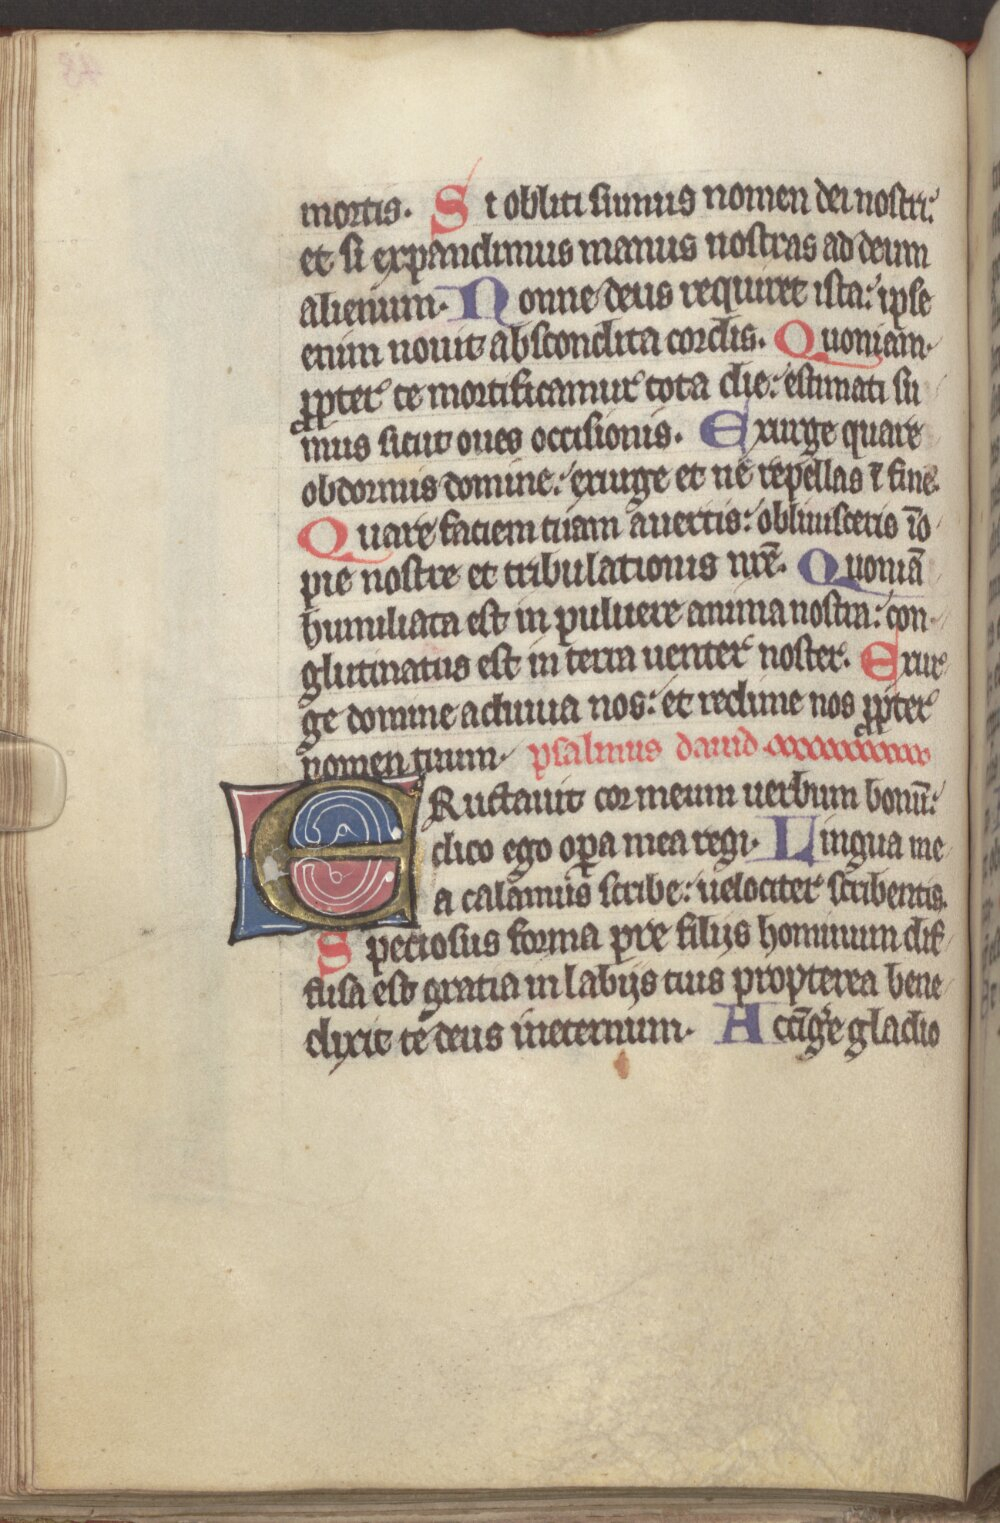 mortis. Si obliti sumus nomen dei nostri:
et si expandimus manus nostras ad deum
alienum. Nonne deus requiret ista: ipse
enim nouit abscondita cordis. Quoniam
ꝓpter te mortificamur tota die: estimati su
mus sicut oues occisionis. Exurge quare
obdormis domine: exurge et ne repellas ī fine.
Quare faciem tuam auertis: obliuisceris īo
pie nostre et tribulationis nr̄e. Quoniā
humiliata est in puluere anima nostra: con
glutinatus est in terra uenter noster. Exur
ge domine adiuua nos: et redime nos ꝓpter
nomen tuum. psalmus dauid
ERuctauit cor meum uerbum bonū:
dico ego oꝑa mea regi. Lingua me
a calamus scribe: uelociter scribentis.
Speciosus forma pre filijs hominum dif
fusa est gratia in labijs tuis propterea bene
dixit te deus ineternum. Accīgere gladio